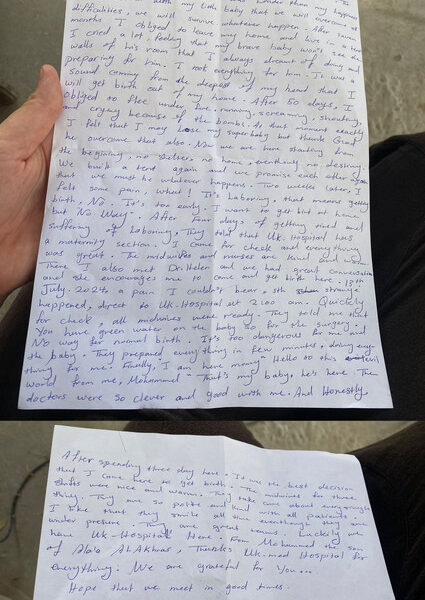 difficulties, we will survive whatever happen. After
months I obliged to leave my home and live in a tent
I cried a lot, feeling that my brave baby won't see the
walls of his room that I always dreamt of doing and
preparing for him. I took everything for him. It was a
sound coming from the deepest of my head that I
will get birth out of my home. After 50 days, I
obliged to flee under fire, running, screaming, shouting,
and crying because of the bombs. At that moment exactly
I felt that I may lose my super baby but thanks God
he overcame that also. Now we are here starting from
the beginning, no shelter, no home, everything no, destroy.
We built a tent again and we promise each other again
that we must be whatever happens. Two weeks later, I
felt some pain, what! It's Laboring, that means getting
birth, No. It's too early. I want to get birt at home
but No Way. After four days of getting tired and
suffering of Laboring, They told that UK. Hospital has
a maternity section. I came for check and everything
was great. The midwifes and nurses are kind and warm.
There I also met Dr. Helen and we had great conversation
and she encourages me to come and get birth here. 19th
July. 2024, a pain I couldn't bear, sth strange
happened, direct to UK-Hospital at 2:00 am. Quickly
for check, all midwives were ready. They told me that
You have green water on the baby so for the surgery.
No way for normal birth. It's too dangerous for me and
the baby. They prepared everything in few months, doing every
thing for me. Finally, "I am here mama" Hello to this evil
world from me, Mohammed" That's my baby, he's here. The
doctors were so clever and good with me. And Honestly,
After spending three day here. It was the best decision
that I came here to get birth. The midwives for three
shifts were nice and warm. They take care about every single
thing. They are so polite and kind with all patients.
I like that they smile all time eventhough they are
under presure. They are great teams. Luckily we
have UK-Hospital Here. From Mohammed the son
of Alaa ALAkhras, Thanks UK-med Hospital for
everything. We are grateful for You...
Hope that we meet in good times.